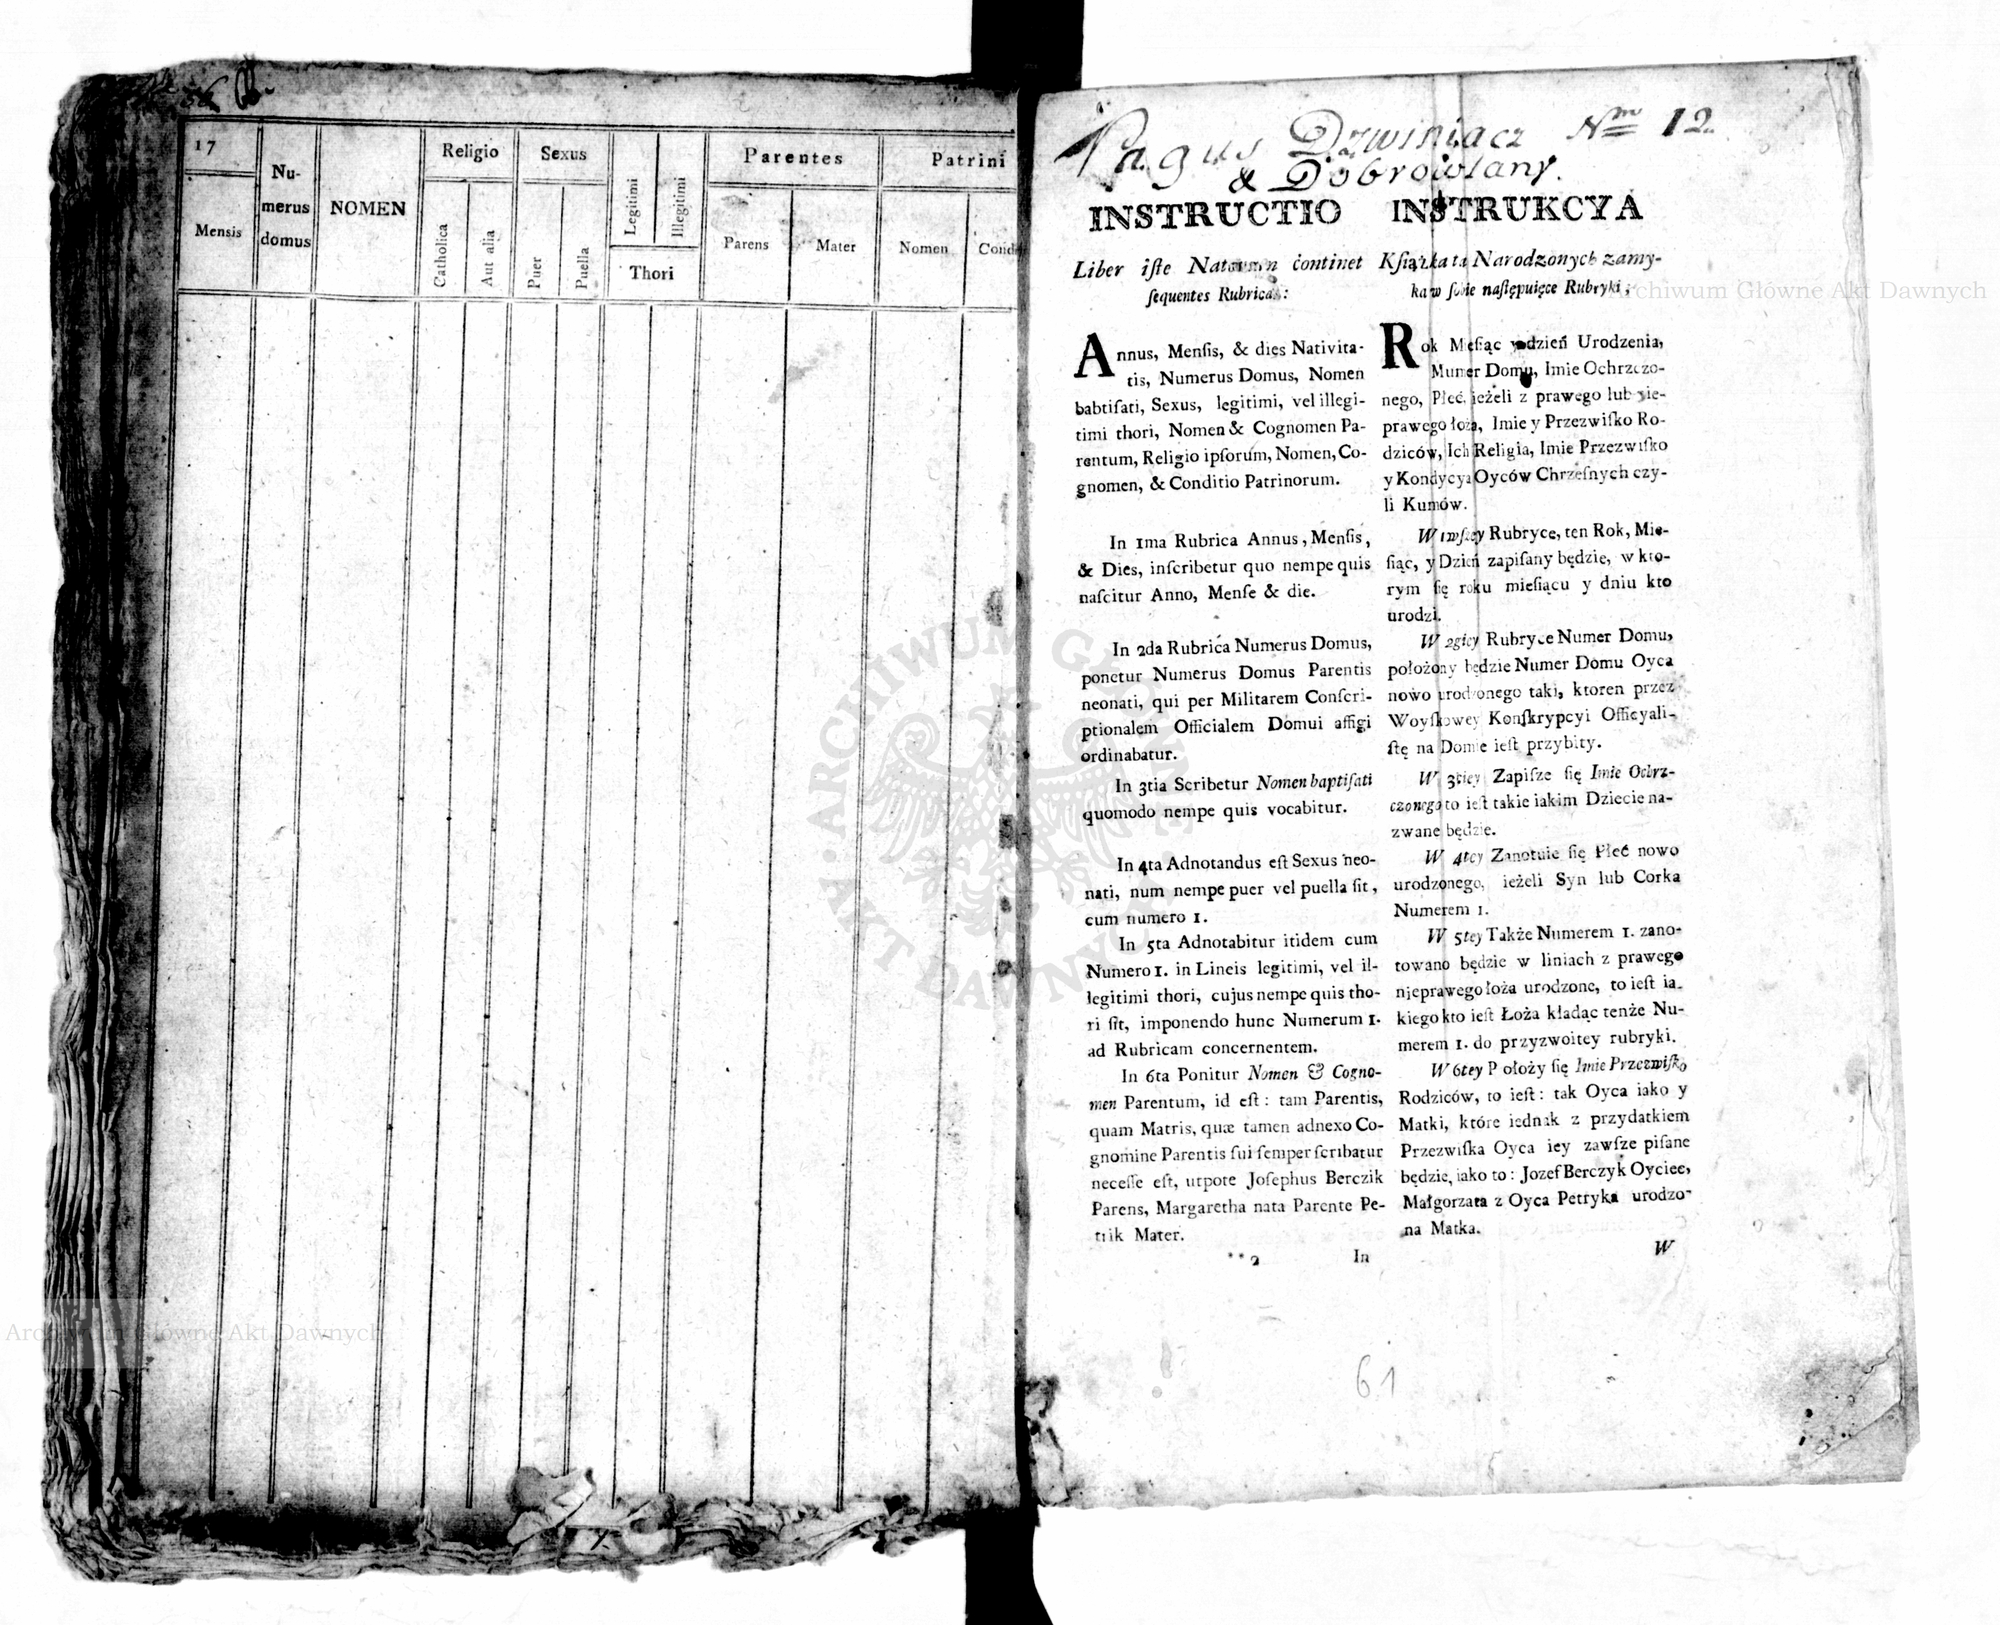 56
17
Mensis
Nu-
merus
domus
NOMEN
Religio
Catholica
Aut alia
Sexus
Puer
Puella
Legitimi
Illegitimi
Thori
Parentes
Parens
Mater
Patrini
Nomen
Cond
Pagus Dzwiniacz Nm 12.
& Dobrowlany.
INSTRUCTIO
Liber iſte Natorum continet
ſequentes Rubricas:
Annus, Menſis, & dies Nativita-
tis, Numerus Domus, Nomen
babtiſati, Sexus, legitimi, vel illegi-
timi thori, Nomen & Cognomen Pa-
rentum, Religio ipſorum, Nomen, Co-
gnomen, & Conditio Patrinorum.
In 1ma Rubrica Annus, Menſis,
& Dies, inſcribetur quo nempe quis
naſcitur Anno, Menſe & die.
In 2da Rubrica Numerus Domus,
ponetur Numerus Domus Parentis
neonati, qui per Militarem Conſcri-
ptionalem Officialem Domui affigi
ordinabatur.
In 3tia Scribetur Nomen baptiſati
quomodo nempe quis vocabitur.
In 4ta Adnotandus eſt Sexus neo-
nati, num nempe puer vel puella ſit,
cum numero 1.
In 5ta Adnotabitur itidem cum
Numero 1. in Lineis legitimi, vel il-
legitimi thori, cujus nempe quis tho-
ri ſit, imponendo hunc Numerum 1.
ad Rubricam concernentem.
In 6ta Ponitur Nomen & Cogno-
men Parentum, id eſt: tam Parentis,
quam Matris, quæ tamen adnexo Co-
gnomine Parentis ſui ſemper ſcribatur
neceſſe eſt, utpote Joſephus Berczik
Parens, Margaretha nata Parente Pe-
trik Mater.
**2 In
INSTRUKCYA
Kſiążka ta Narodzonych zamy-
ka w ſobie naſtępuięce Rubryki:
Rok Mieſiąc y dzień Urodzenia,
Numer Domu, Imie Ochrzczo-
nego, Płeć, ieżeli z prawego lub nie-
prawego łoża, Imie y Przezwiſko Ro-
dziców, Ich Religia, Imie Przezwiſko
y Kondycya Oyców Chrzeſnych czy-
li Kumów.
W 1wſzey Rubryce, ten Rok, Mie-
ſiąc, y Dzień zapiſany będzie, w kto-
rym ſię roku mieſiącu y dniu kto
urodzi.
W 2giey Rubryce Numer Domu,
położony będzie Numer Domu Oyca
nowo urodzonego taki, ktoren przez
Woyſkowey Konſkrypcyi Officyali-
ſtę na Domie ieſt przybity.
W 3ciey Zapiſze ſię Imie Ochrz-
czonego to ieſt takie iakim Dziecie na-
zwane będzie.
W 4tey Zanotuie ſię Płeć nowo
urodzonego, ieżeli Syn lub Corka
Numerem 1.
W 5tey Także Numerem 1. zano-
towano będzie w liniach z prawego
nieprawego łoża urodzone, to ieſt ia-
kiego kto ieſt Łoża kładąc tenże Nu-
merem 1. do przyzwoitey rubryki.
W 6tey Położy ſię Imie Przezwiſko
Rodziców, to ieſt: tak Oyca iako y
Matki, które iednak z przydatkiem
Przezwiſka Oyca iey zawſze piſane
będzie, iako to: Jozef Berczyk Oyciec,
Małgorzata z Oyca Petryka urodzo-
na Matka.
W
61
Archiwum Główne Akt Dawnych
Archiwum Główne Akt Dawnych
ARCHIWUM GŁÓWNE AKT DAWNYCH